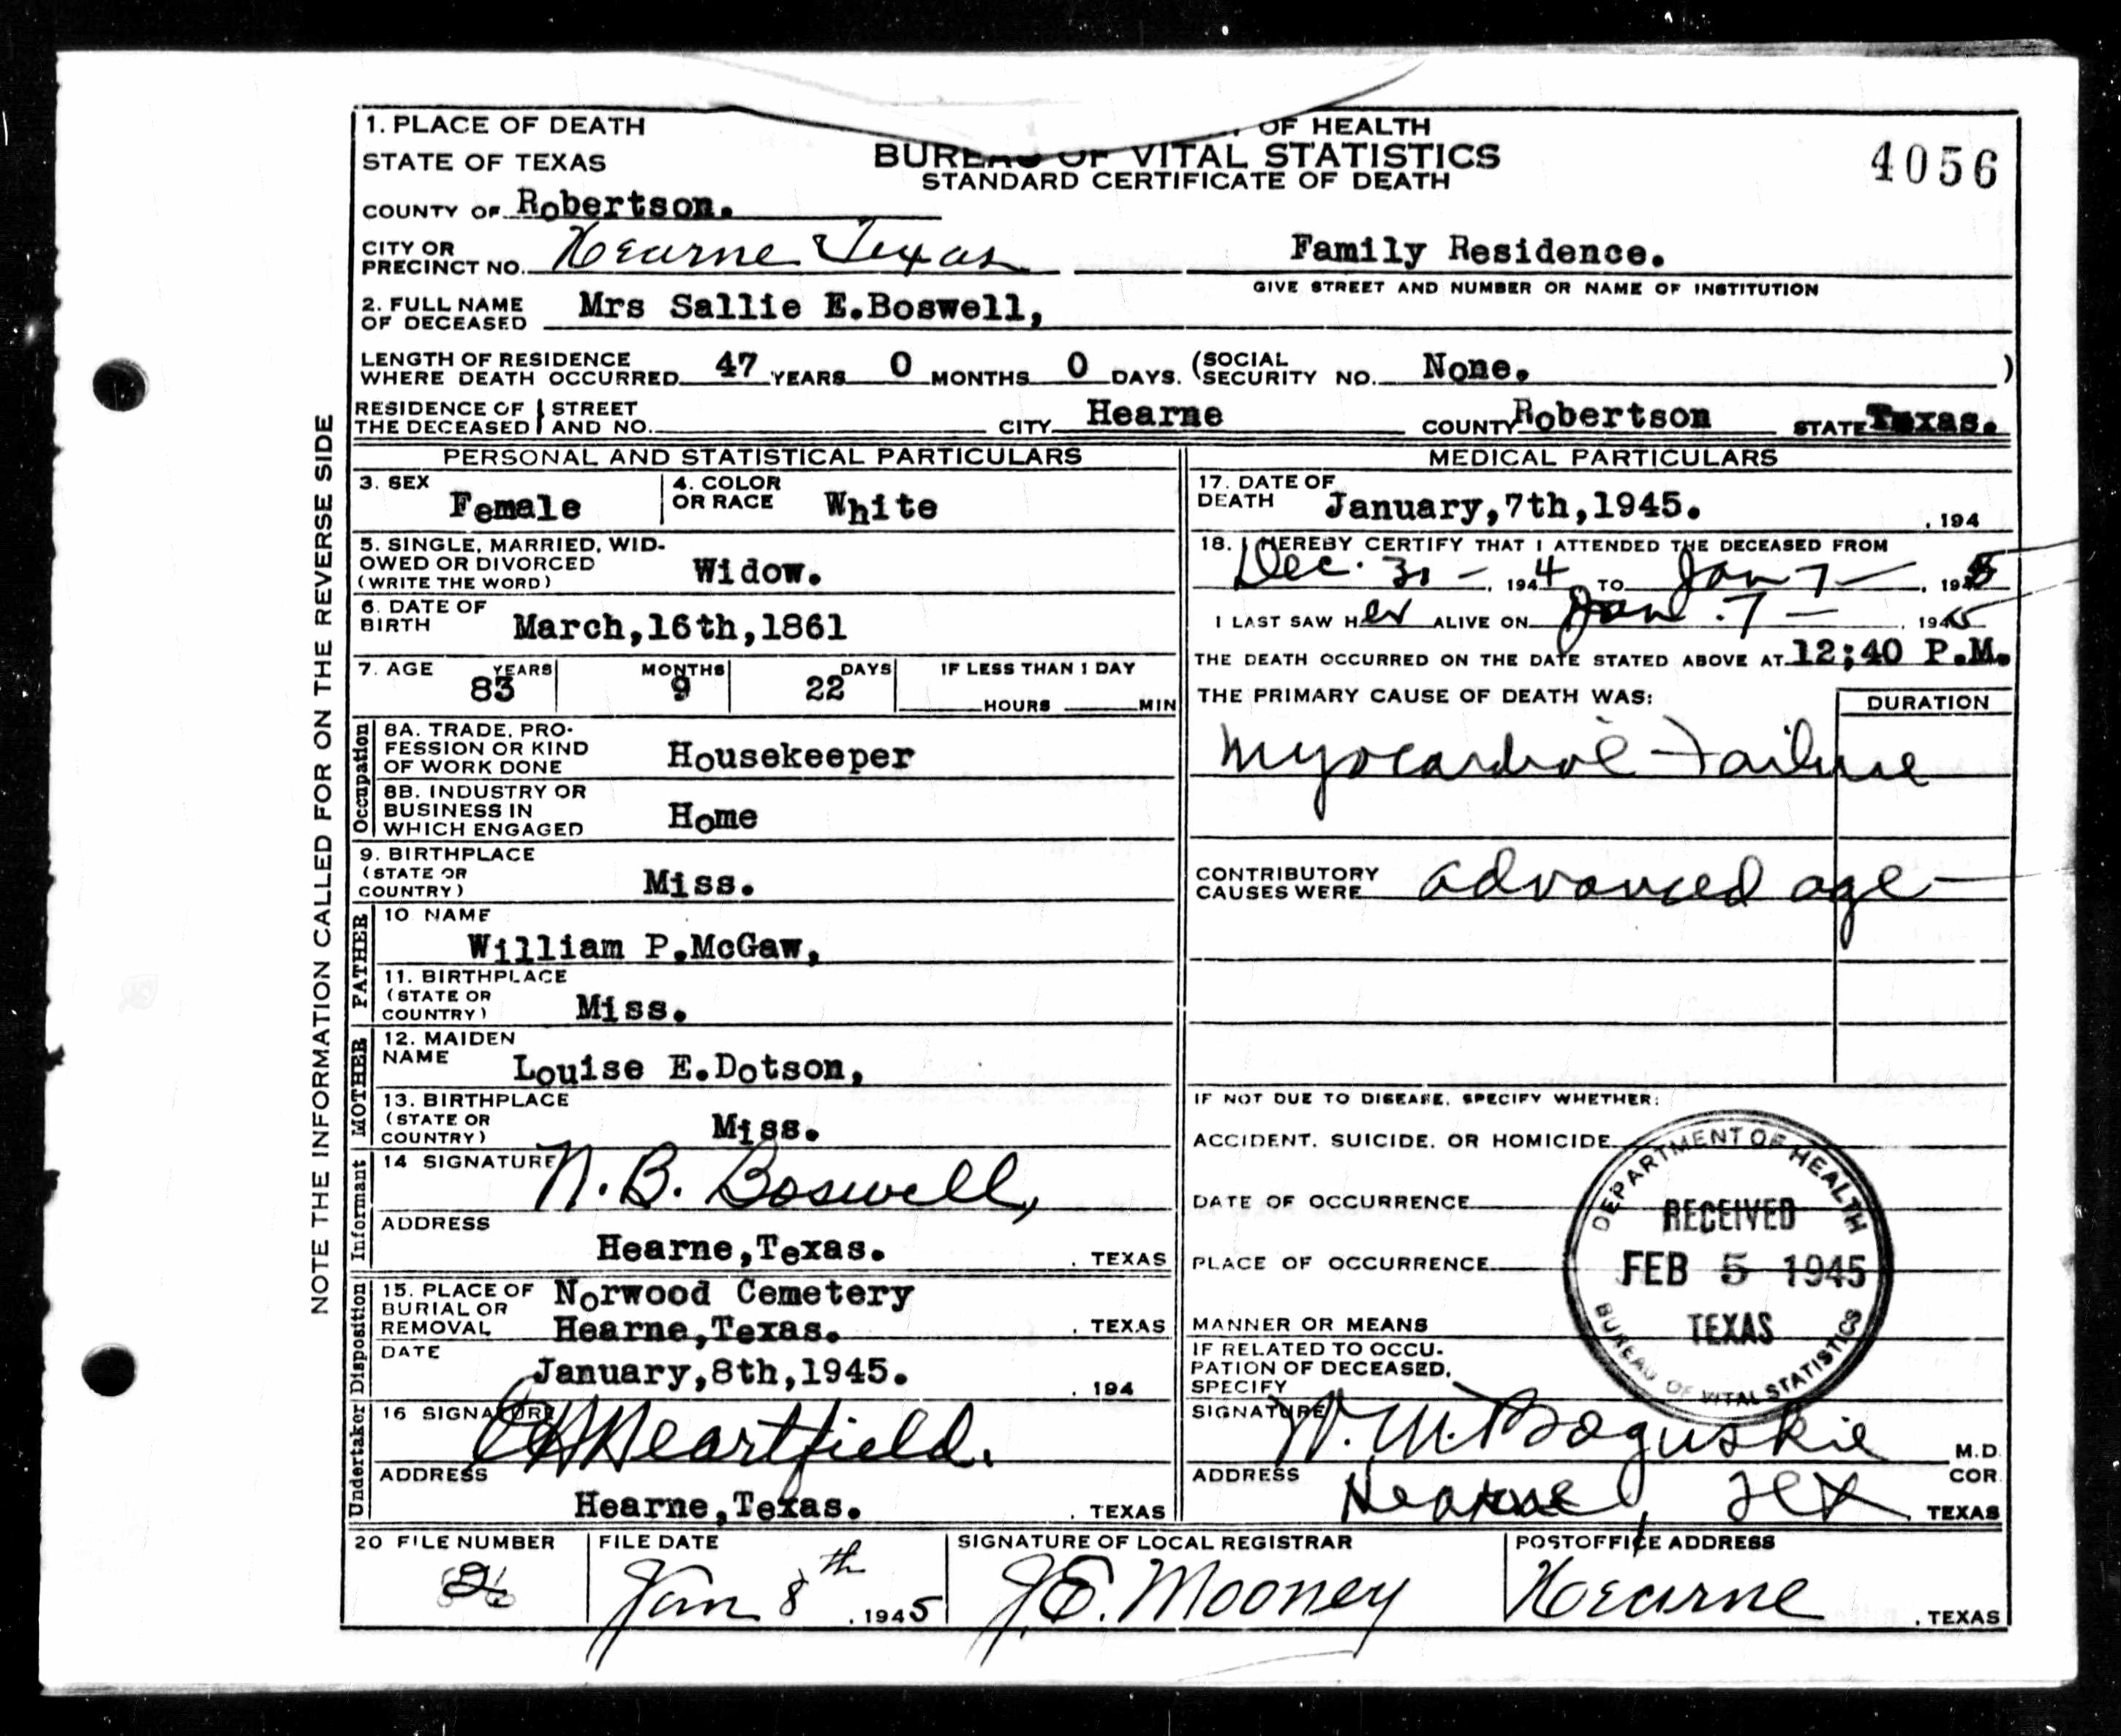 1. PLACE OF DEATH
STATE OF TEXAS
OF HEALTH
BUREAU OF VITAL STATISTICS
STANDARD CERTIFICATE OF DEATH
4056
COUNTY OF Robertson.
CITY OR PRECINCT NO. Hearne Texas
Family Residence.
GIVE STREET AND NUMBER OR NAME OF INSTITUTION
2. FULL NAME OF DECEASED Mrs Sallie E.Boswell,
LENGTH OF RESIDENCE WHERE DEATH OCCURRED 47 YEARS 0 MONTHS 0 DAYS. (SOCIAL SECURITY NO. None. )
RESIDENCE OF THE DECEASED STREET AND NO. CITY Hearne COUNTY Robertson STATE Texas.
NOTE THE INFORMATION CALLED FOR ON THE REVERSE SIDE
PERSONAL AND STATISTICAL PARTICULARS
3. SEX Female
4. COLOR OR RACE White
5. SINGLE, MARRIED, WIDOWED OR DIVORCED (WRITE THE WORD) Widow.
6. DATE OF BIRTH March,16th,1861
7. AGE YEARS 83 MONTHS 9 DAYS 22 IF LESS THAN 1 DAY HOURS MIN
Occupation
8A. TRADE, PROFESSION OR KIND OF WORK DONE Housekeeper
8B. INDUSTRY OR BUSINESS IN WHICH ENGAGED Home
9. BIRTHPLACE (STATE OR COUNTRY) Miss.
FATHER
10 NAME William P.McGaw,
11. BIRTHPLACE (STATE OR COUNTRY) Miss.
MOTHER
12. MAIDEN NAME Louise E.Dotson,
13. BIRTHPLACE (STATE OR COUNTRY) Miss.
Informant
14 SIGNATURE N. B. Boswell,
ADDRESS Hearne,Texas. , TEXAS
Disposition
15. PLACE OF BURIAL OR REMOVAL Norwood Cemetery
Hearne,Texas. , TEXAS
DATE January,8th,1945. , 194
Undertaker
16 SIGNATURE Heartfield.
ADDRESS Hearne,Texas. , TEXAS
MEDICAL PARTICULARS
17. DATE OF DEATH January,7th,1945. , 194
18. I HEREBY CERTIFY THAT I ATTENDED THE DECEASED FROM
Dec. 31 - , 1944 TO Jan 7 - , 1945
I LAST SAW HER ALIVE ON Jan. 7 - , 1945
THE DEATH OCCURRED ON THE DATE STATED ABOVE AT 12;40 P.M.
THE PRIMARY CAUSE OF DEATH WAS:
DURATION
Myocardial Failure
CONTRIBUTORY CAUSES WERE advanced age -
IF NOT DUE TO DISEASE, SPECIFY WHETHER:
ACCIDENT, SUICIDE, OR HOMICIDE
DATE OF OCCURRENCE
PLACE OF OCCURRENCE
MANNER OR MEANS
IF RELATED TO OCCUPATION OF DECEASED, SPECIFY
DEPARTMENT OF HEALTH
RECEIVED
FEB 5 1945
TEXAS
BUREAU OF VITAL STATISTICS
SIGNATURE W. M. Boguskie M.D.
COR.
ADDRESS Hearne, Tex , TEXAS
20 FILE NUMBER
FILE DATE Jan 8th , 1945
SIGNATURE OF LOCAL REGISTRAR J.E. Mooney
POSTOFFICE ADDRESS Hearne , TEXAS